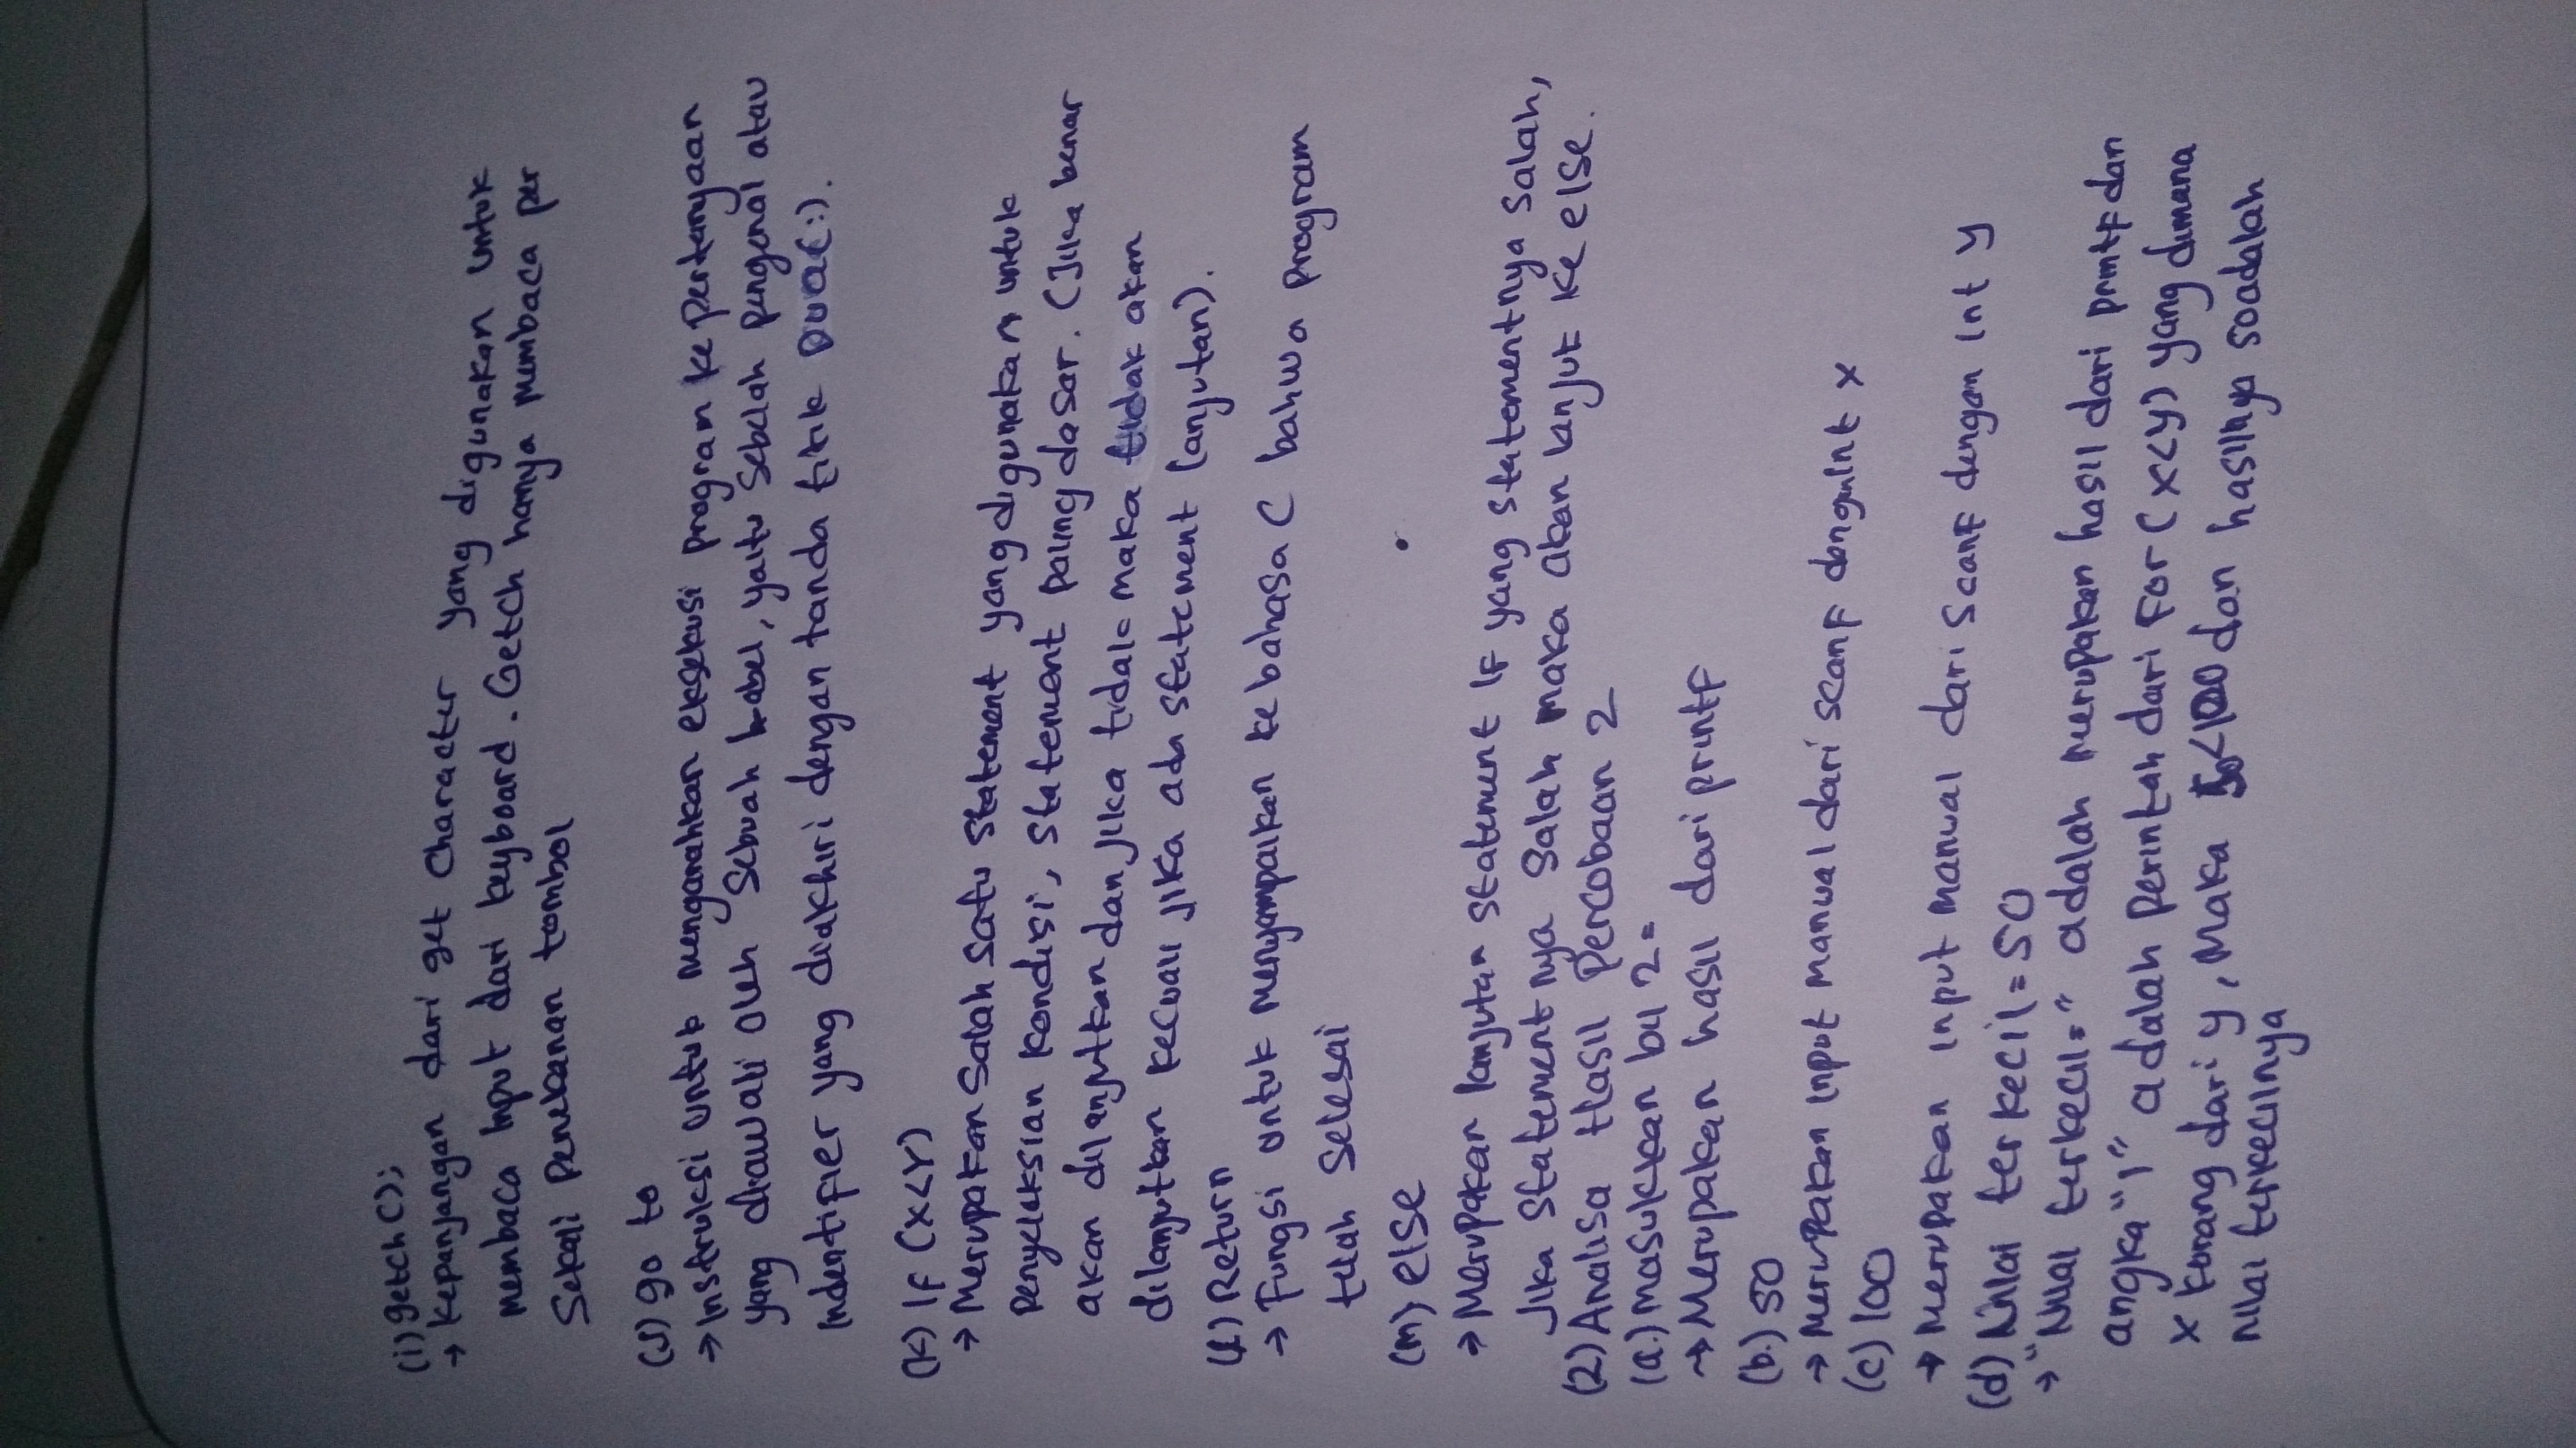 (i) getch();
→ Kepanjangan dari get character yang digunakan untuk
membaca input dari keyboard. Getch hanya membaca per
Sekali penekanan tombol
(J) go to
→ Instruksi untuk mengarahkan eksekusi program ke pertanyaan
yang diawali oleh sebuah label, yaitu sebelah pengenal atau
Indentifier yang diakhiri dengan tanda titik Dua(:).
(k) If (x<y)
→ Merupakan salah satu statement yang digunakan untuk
penyeleksian kondisi, statement paling dasar. (Jika benar
akan dilanjutkan dan jika tidak maka tidak akan
dilanjutkan kecuali jika ada statement lanjutan).
(l) Return
→ Fungsi untuk menyampaikan ke bahasa C bahwa program
telah selesai
(m) else
→ Merupakan lanjutan statement if yang statementnya salah,
Jika statementnya salah maka akan lanjut ke else.
(2) Analisa Hasil Percobaan 2
(a.) masukkan bil 2 =
→ Merupakan hasil dari printf
(b.) 50
→ Merupakan input manual dari scanf dengan int x
(c) 100
→ Merupakan input manual dari scanf dengan int y
(d) Nilai terkecil = 50
→ "Nilai terkecil=" adalah merupakan hasil dari printf dan
angka "1" adalah perintah dari For (x<y) yang dimana
x kurang dari y, Maka 50<100 dan hasilnya 50 adalah
nilai terkecilnya